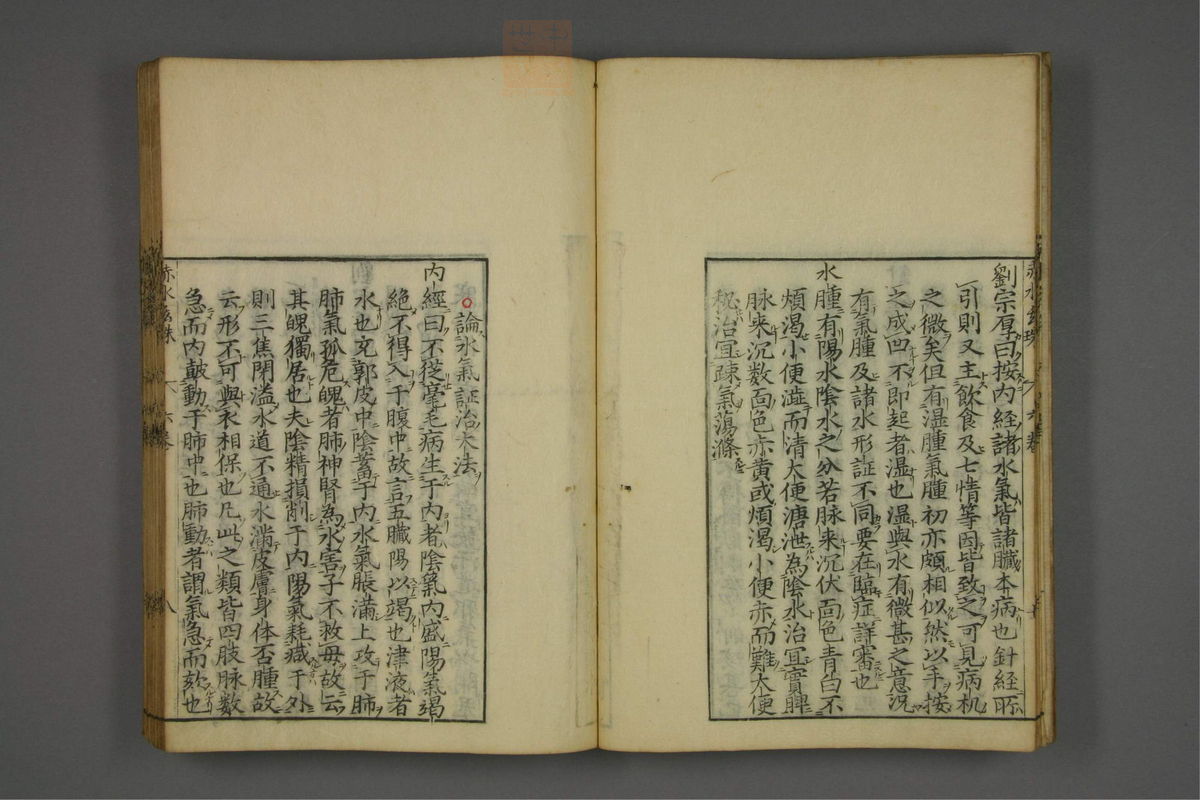 劉宗厚曰按内經諸水氣皆諸臟本病也針經所
引則又主飲食及七情等因皆致之可見病机
之微矣但有湿腫氣腫初亦頗相似然以手按
之成凹不即起者湿也湿與水有微甚之意況
有氣腫及諸水形証不同要在臨症詳審也
水腫有陽水陰水之分若脉来沉伏面色青白不
煩渴小便澁而清大便溏泄為陰水治宜實脾
脉来沉数面色赤黄或煩渴小便赤而難大便
秘治宜疎氣蕩滌
赤水玄珠 六卷
論水氣証治大法
内經曰不從毫毛病生于内者陰氣内盛陽氣竭
絶不得入于腹中故言五臟陽以竭也津液者
水也充郭皮中陰蓄于内水氣脹滿上攻于肺
肺氣孤危魄者肺神腎為水害子不救母故云
其魄獨居也夫陰精損削于内陽氣耗減于外
則三焦閉溢水道不通水滿皮膚身体否腫故
云形不可與衣相保也凡此之類皆四肢脉数
急而内鼓動于肺中也肺動者謂氣急而欬也
赤水玄珠 六卷 八